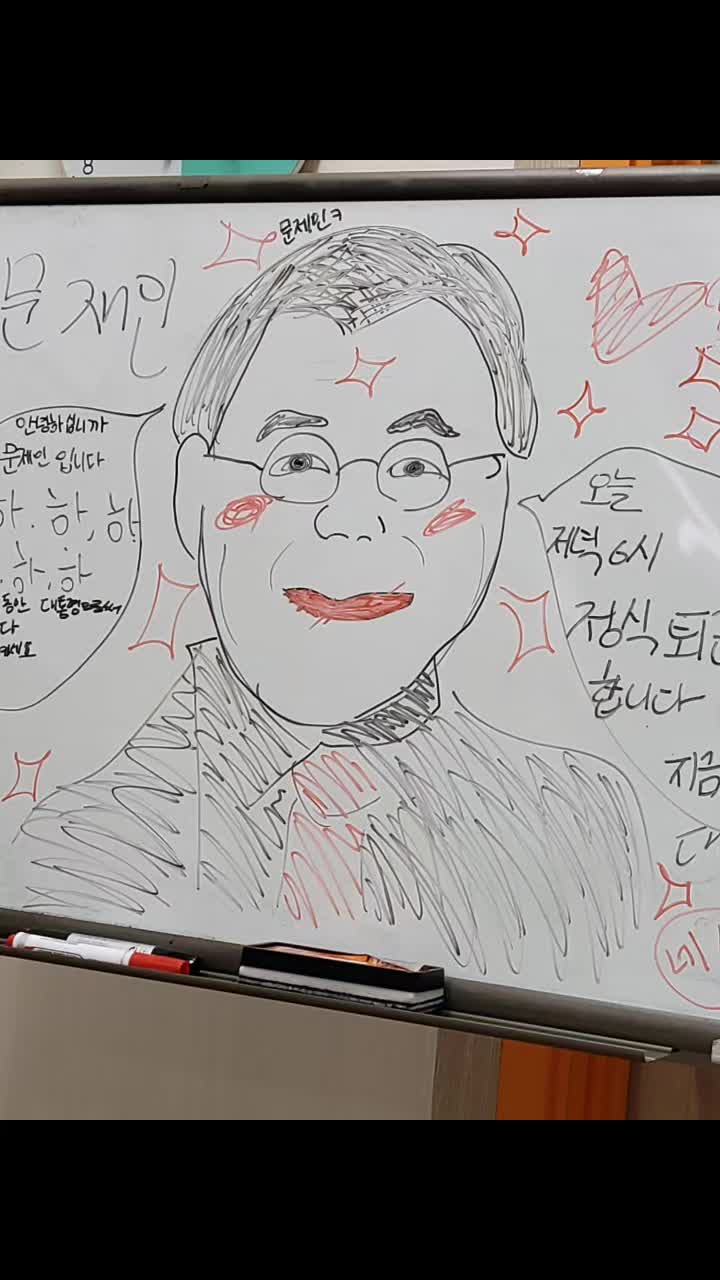 8
문제인ㅋ
문 재인
안녕하십니까
문제인 입니다
하. 하, 하
하, 하
동안 대통령으로써
다
오늘
저녁 6시
정식 퇴근
합니다
지금
네